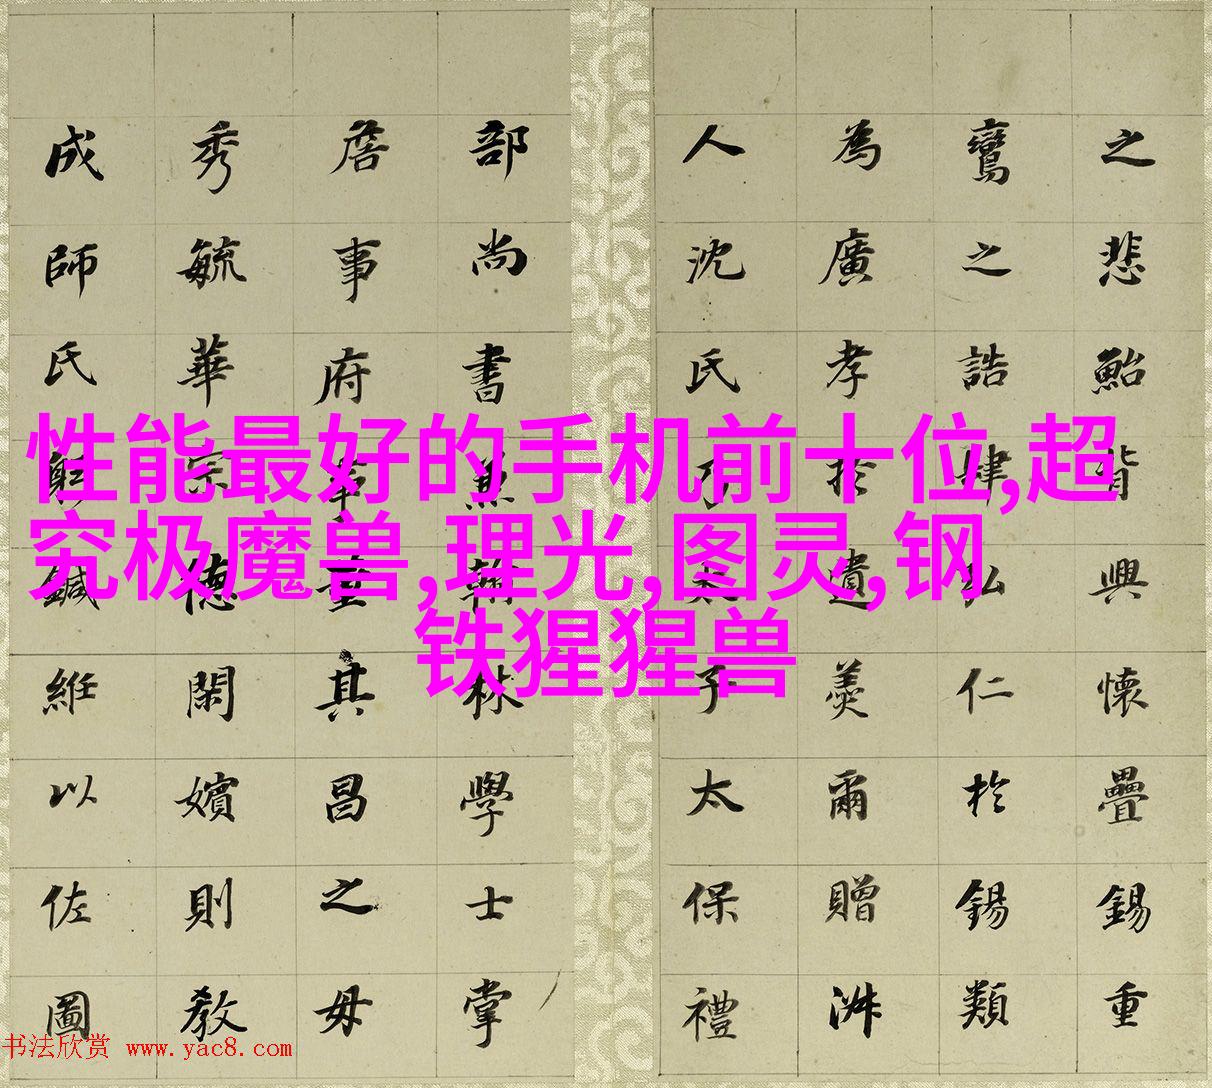 之悲鮐背興懷疊錫重
鸞之誥肆弘仁於錫類
為廣孝於遺羮爾贈淑
人沈氏乃太子太保禮
部尚書兼翰林學士掌
詹事府事董其昌之毋
秀毓華宗德閑嬪則教
成師氏躬鍼絍以佐圖
性能最好的手机前十位,超
究极魔兽,理光,图灵,钢
铁猩猩兽
书法欣赏 www.yac8.com